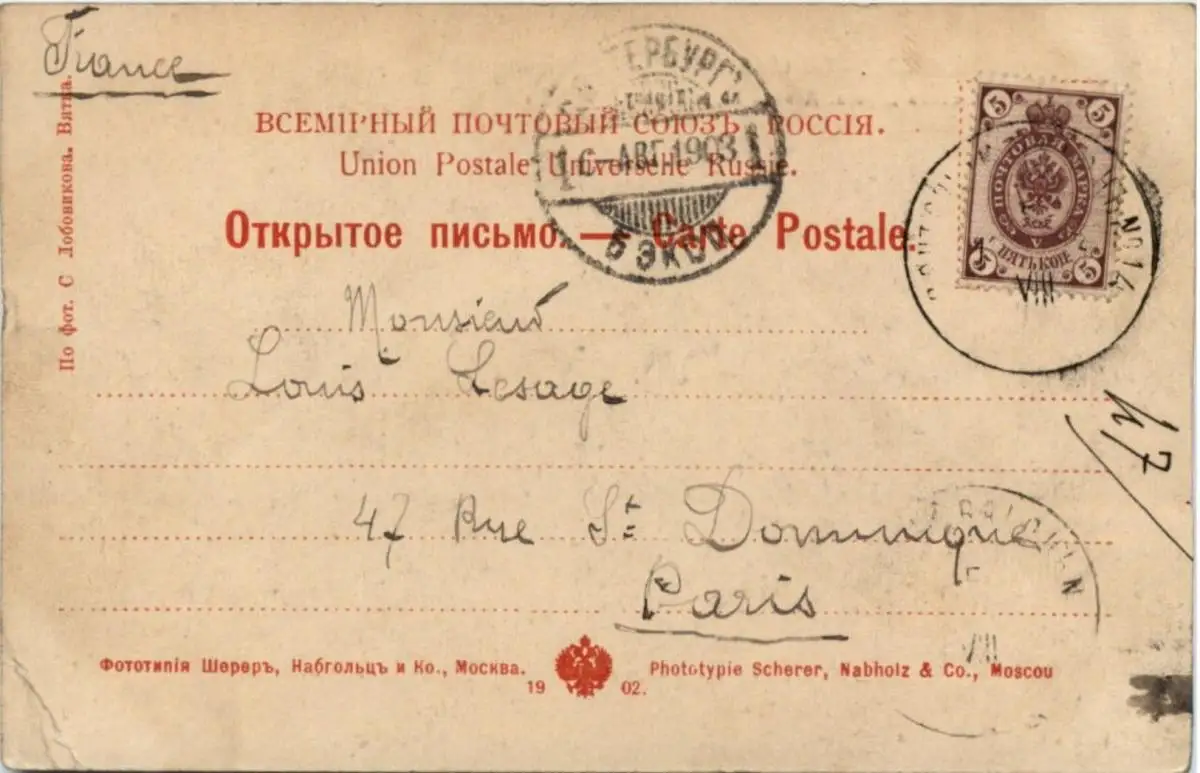 France
По фот. С Лобовикова. Вятка.
ВСЕМІРНЫЙ ПОЧТОВЫЙ СОЮЗЪ, РОССІЯ.
Union Postale Universelle Russie.
Открытое письмо. — Carte Postale.
ПЕТЕРБУРГЪ
1 6-АВГ.1903 1
5 ЭКСП.
5 5
ПОЧТОВАЯ МАРКА
V
ПЯТЬ КОП
5 5
No 14
VIII
Monsieur
Louis Lesage
47
47 Rue St Dominique
Paris
VIII
Фототипія Шереръ, Набгольцъ и Ко., Москва.
Phototypie Scherer, Nabholz & Co., Moscou
19 02.